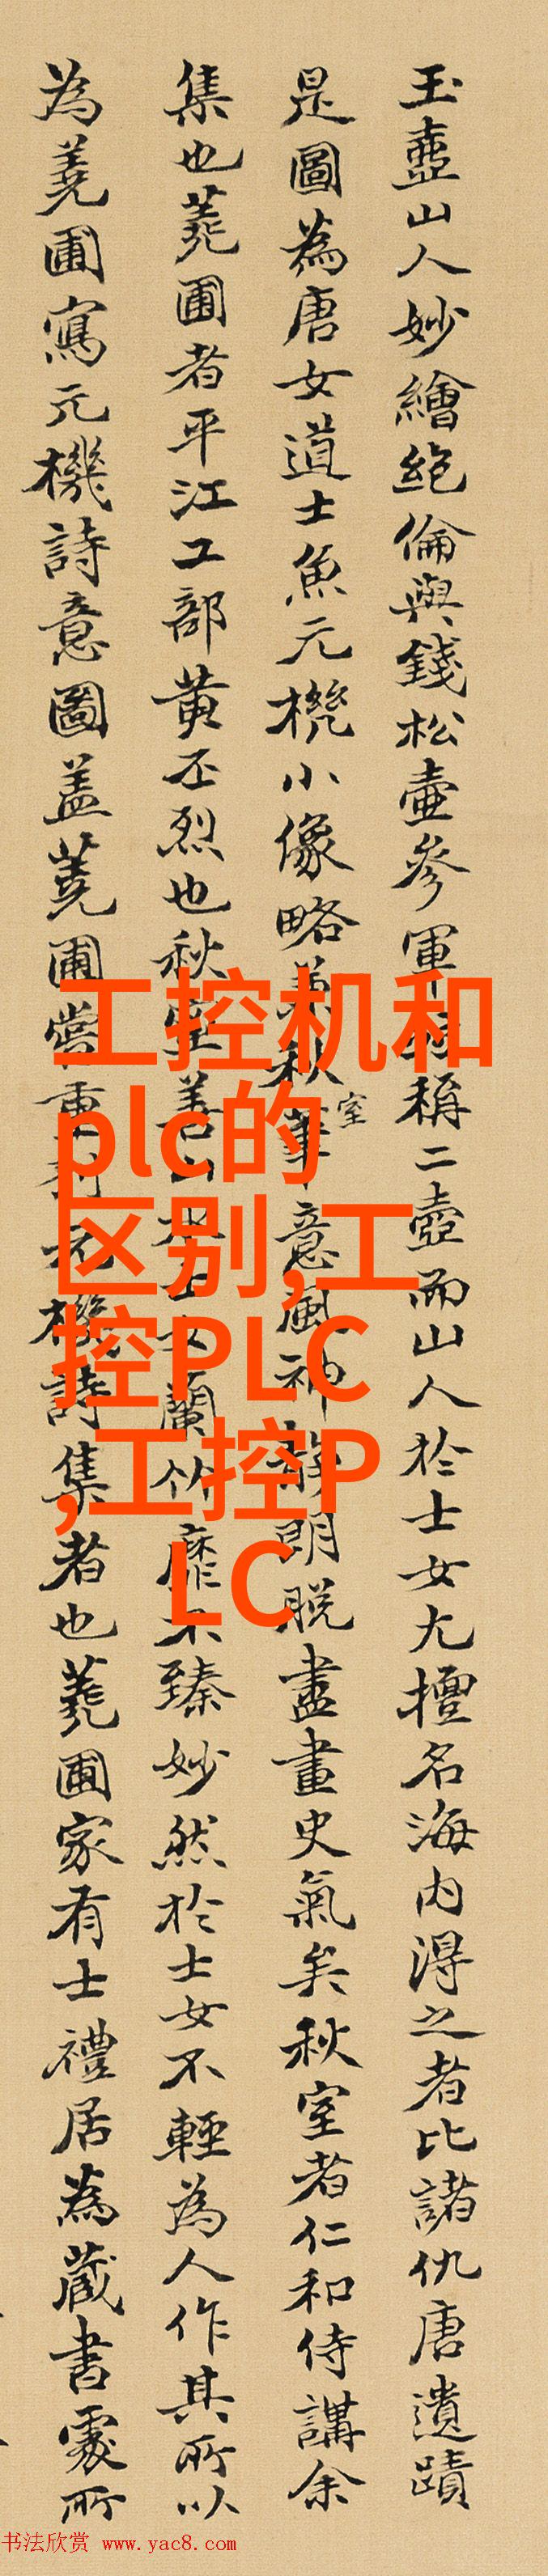 玉壺山人妙繪絶倫與錢松壺參軍稱二壺而山人於士女尤擅名海内得之者比諸仇唐遺蹟
是圖為唐女道士魚元機小像略兼秋室筆意風神静朗脱盡畫史氣矣秋室者仁和侍講余
集也蕘圃者平江工部黄丕烈也秋室善山水士女蘭竹靡不臻妙然於士女不輕為人作其所以
為蕘圃寫元機詩意圖盖蕘圃嘗重刻元機詩集者也蕘圃家有士禮居為藏書處所
工控机和
plc的
区别,工
控PLC
,工控P
LC
书法欣赏 www.yac8.com